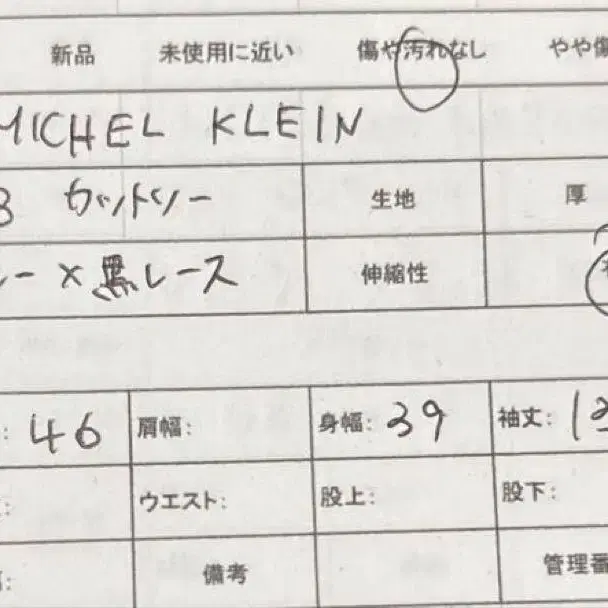 新品 未使用に近い 傷や汚れなし やや傷
MICHEL KLEIN
カットソー 生地 厚
ー×黒レース 伸縮性
: 46 肩幅: 身幅: 39 袖丈:
: ウエスト: 股上: 股下:
: 備考 管理番